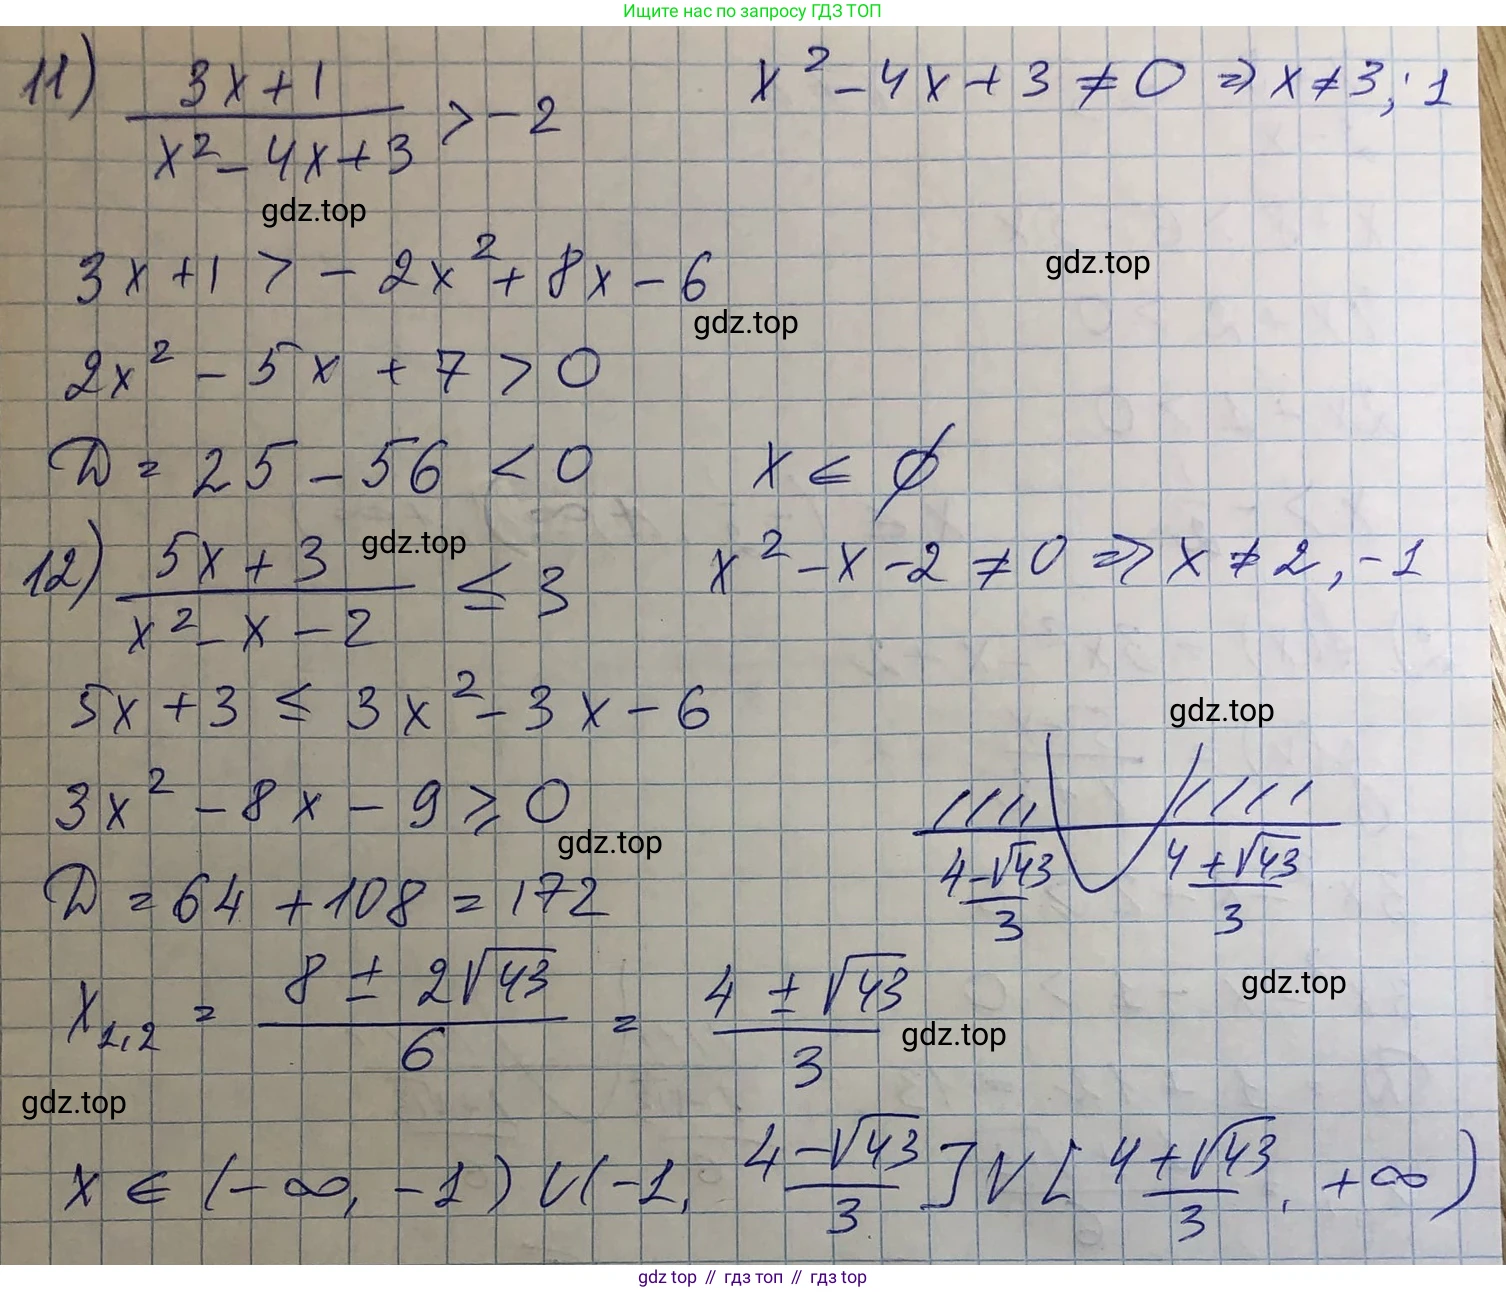 Ищите нас по запросу ГДЗ ТОП
11) (3x+1)/(x²-4x+3) > -2    x²-4x+3≠0 ⇒ x≠3; 1
gdz.top
3x+1 > -2x²+8x-6
gdz.top
gdz.top
2x²-5x+7>0
D = 25-56 < 0    x ∈ ∅
12) (5x+3)/(x²-x-2) ≤ 3    x²-x-2≠0 ⇒ x≠2, -1
gdz.top
5x+3 ≤ 3x²-3x-6
gdz.top
3x²-8x-9≥0
gdz.top
(4-√43)/3    (4+√43)/3
D = 64+108 = 172
x₁,₂ = (8±2√43)/6 = (4±√43)/3
gdz.top
gdz.top
gdz.top
x ∈ (-∞, -1) ∪ (-1, (4-√43)/3] ∪ [(4+√43)/3, +∞)
gdz top // гдз топ // гдз top